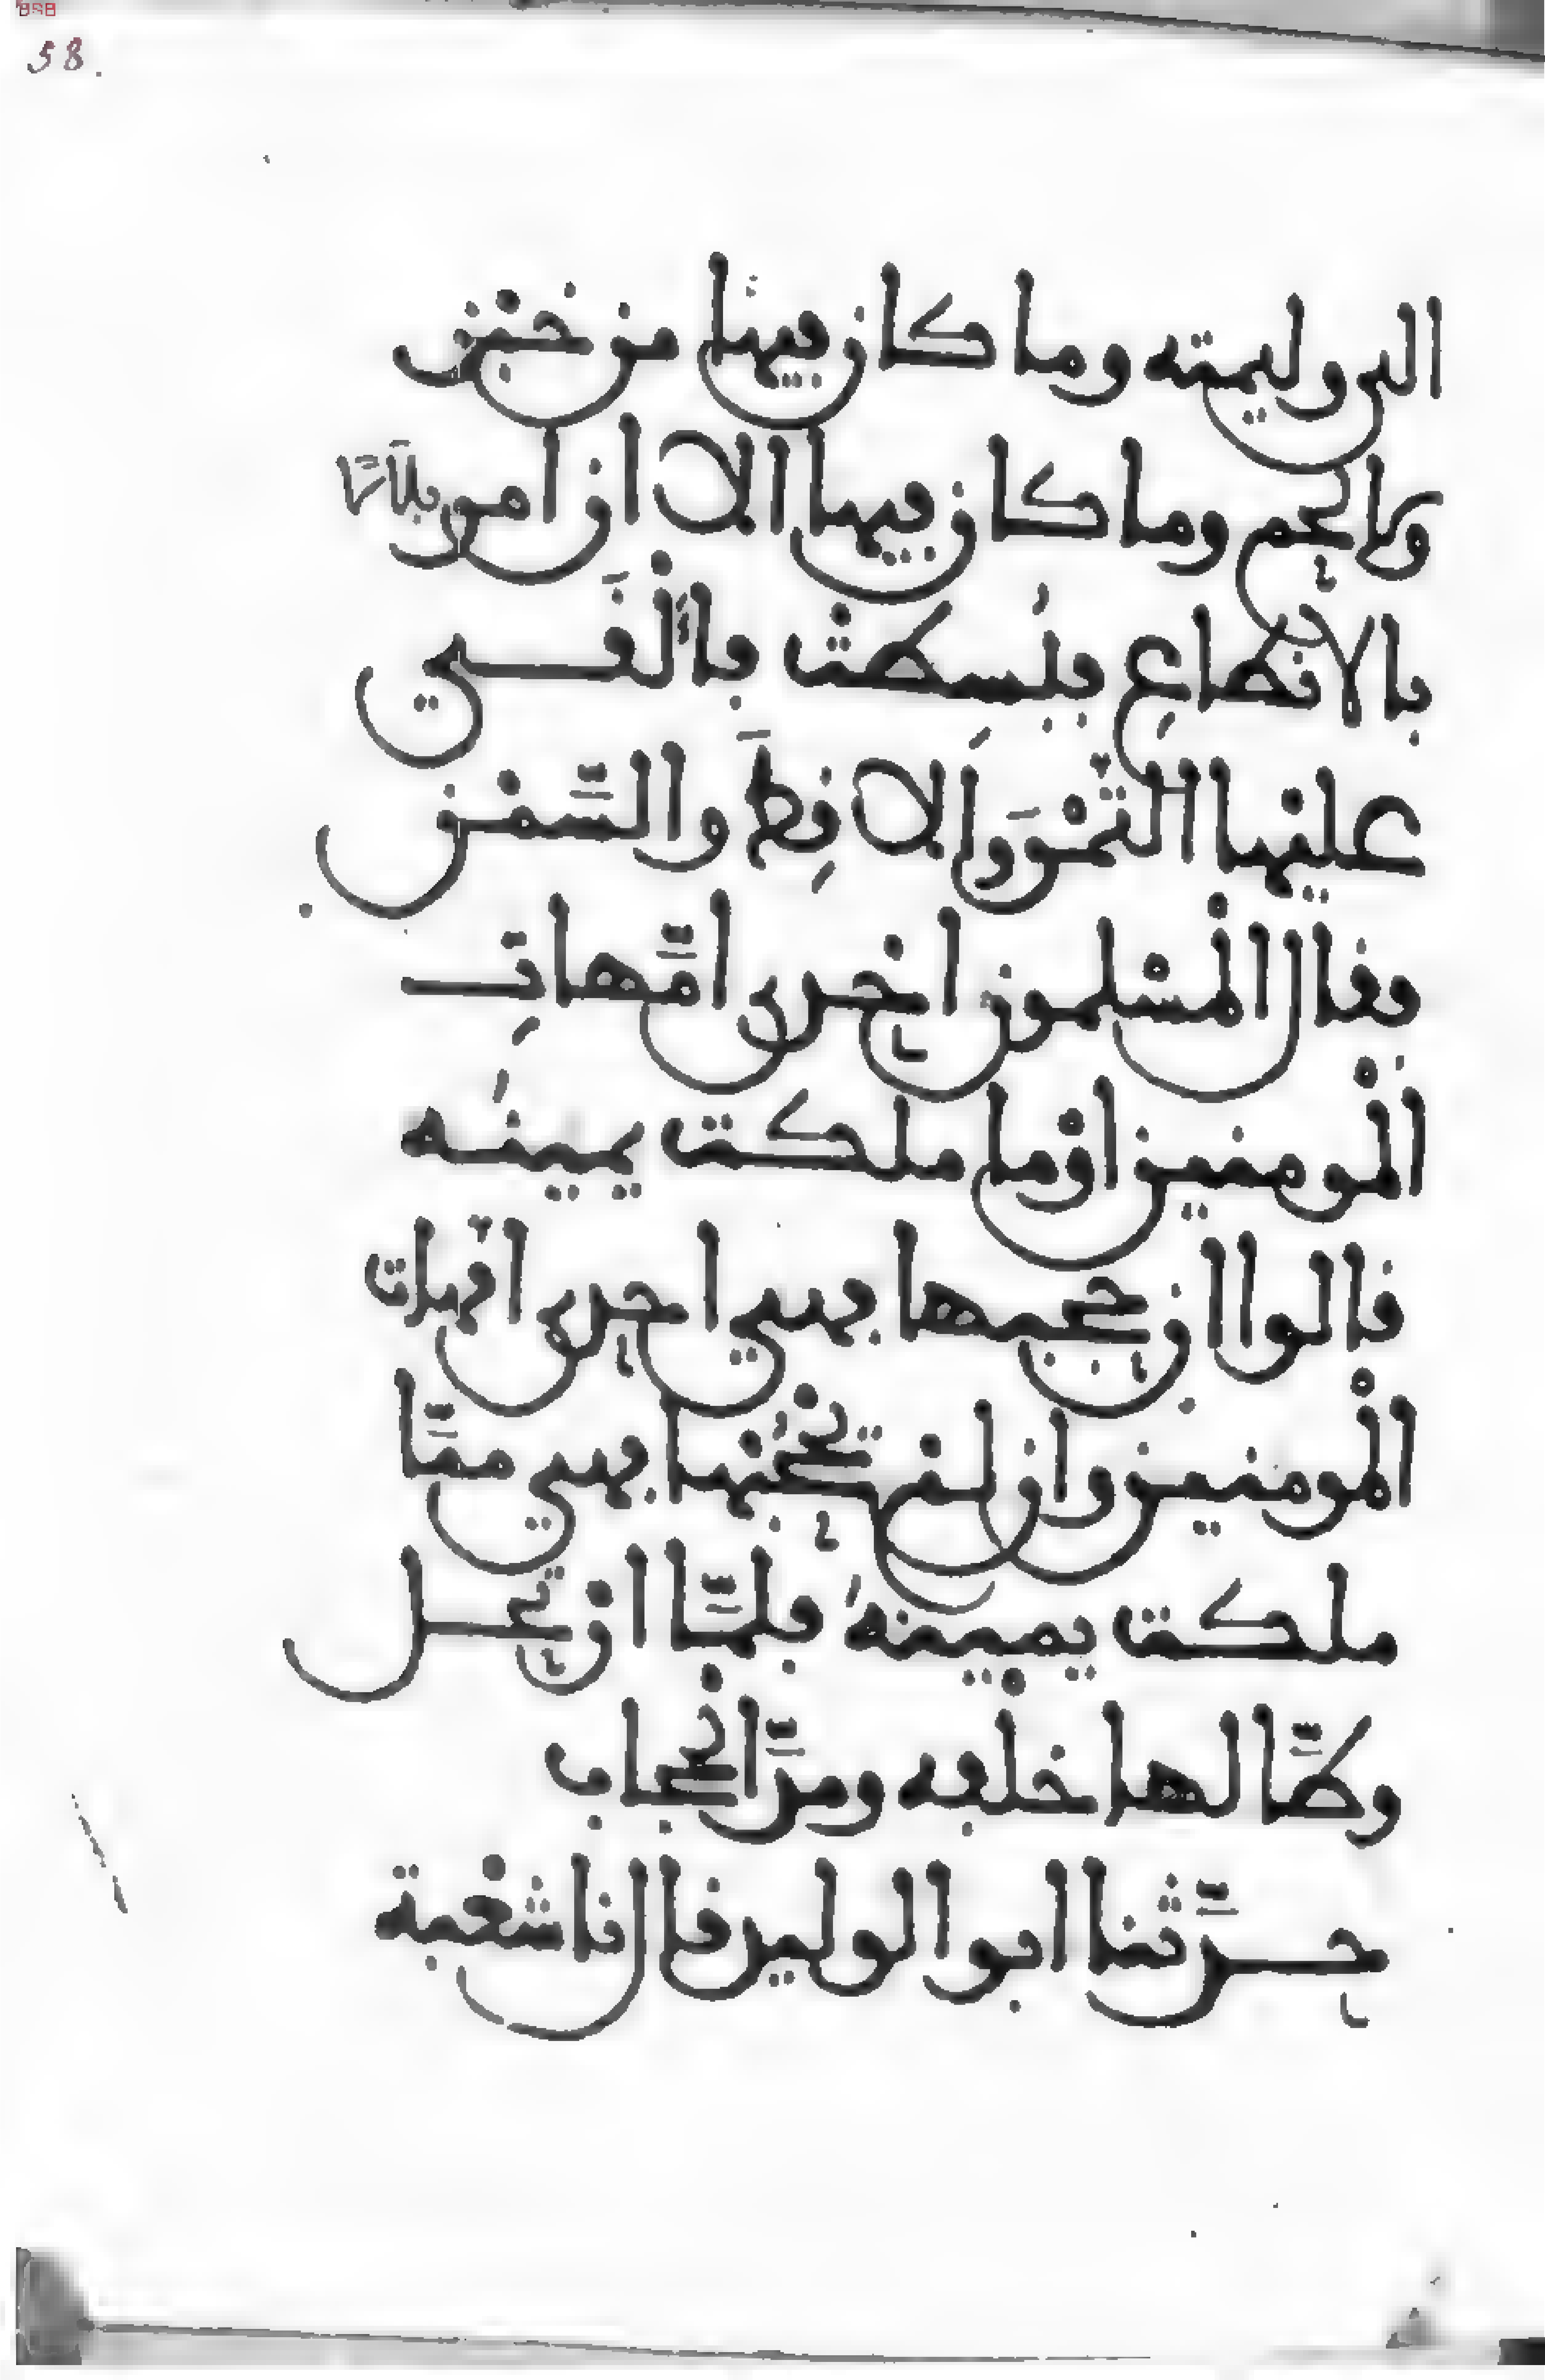 58.
الى وليمته وما كان فيها من خبز
ولا لحم وما كان فيها الا ان امر بلالا
بالانطاع فبسطت فالقى
عليها التمر والاقط والسمن
فقال المسلمون احدى امهات
المومنين او ما ملكت يمينه
قالوا ان حجبها فهي احدى امهات
المومنين وان لم يحجبها فهي مما
ملكت يمينه فلما ارتحل
وطا لها خلفه ومد الحجاب
حدثنا ابو الوليد قال نا شعبة